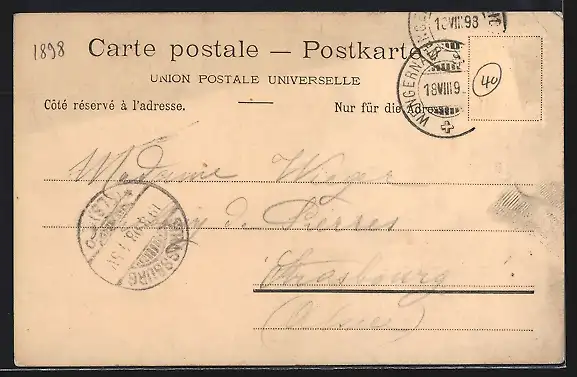 1898
Carte postale — Postkarte
UNION POSTALE UNIVERSELLE
Côté réservé à l'adresse.
Nur für die Adresse
18 VIII 98
WENGERN
18 VIII 9
40
Madame Wieger
de Pierres
Strasbourg
(Alsace)